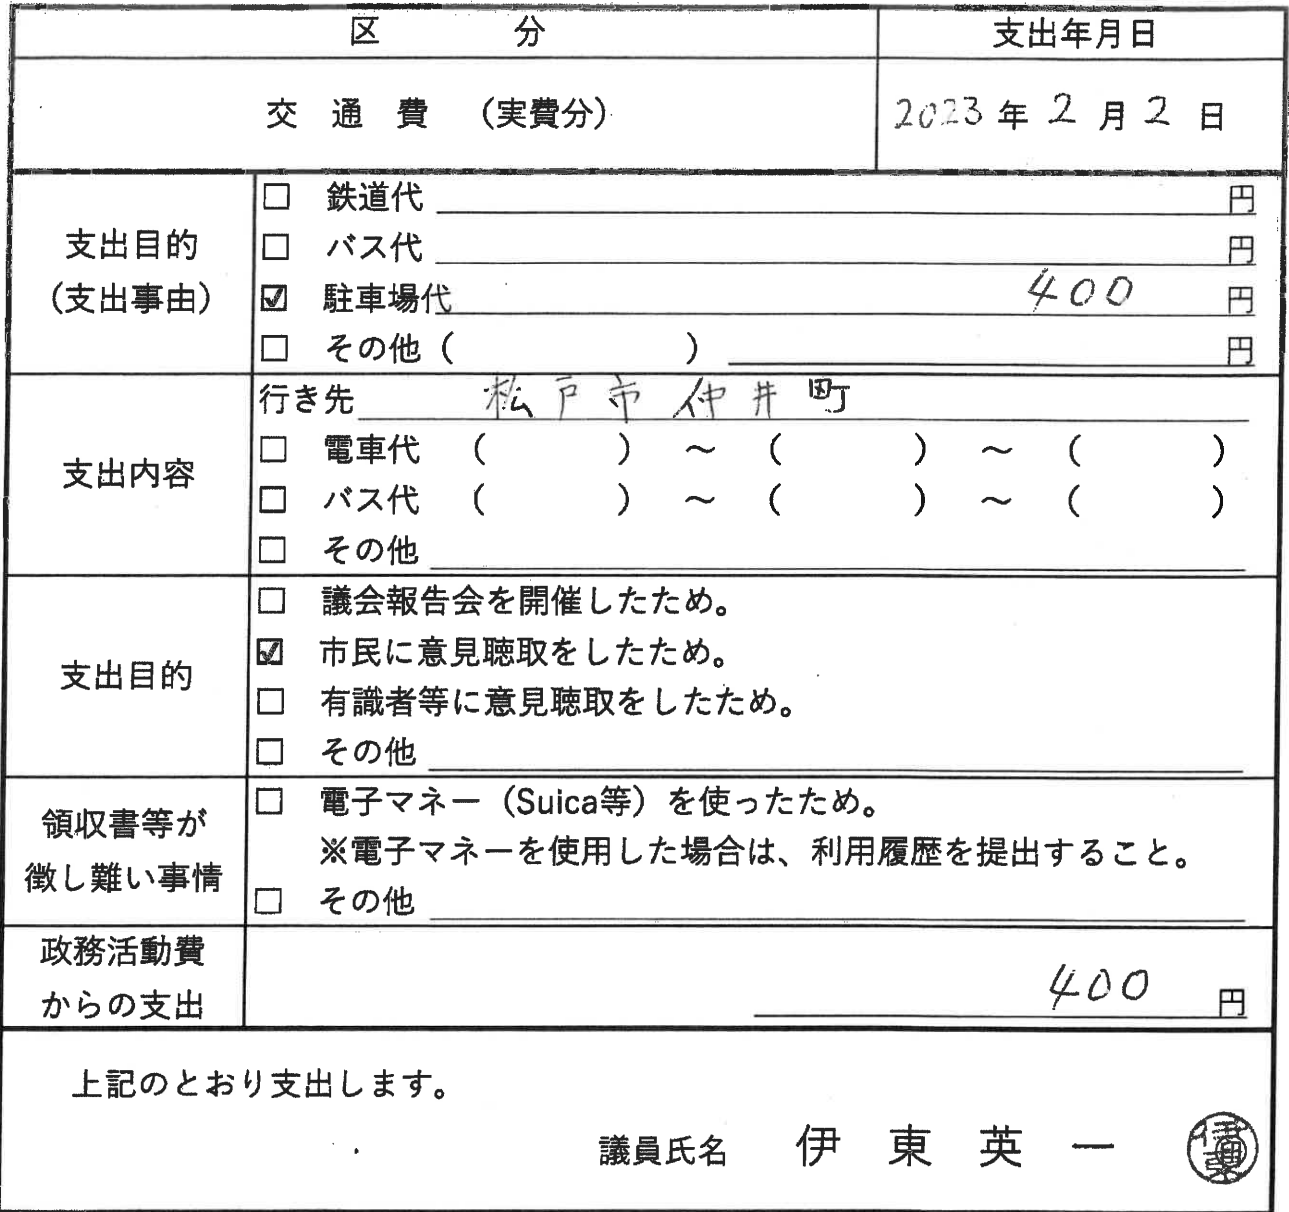 区 分 支出年月日
交通費 （実費分） 2023年2月2日
支出目的
（支出事由）
□ 鉄道代 円
□ バス代 円
☑ 駐車場代 400 円
□ その他（ ） 円
支出内容
行き先 松戸市仲井町
□ 電車代 （ ） ～ （ ） ～ （ ）
□ バス代 （ ） ～ （ ） ～ （ ）
□ その他
支出目的
□ 議会報告会を開催したため。
☑ 市民に意見聴取をしたため。
□ 有識者等に意見聴取をしたため。
□ その他
領収書等が
徴し難い事情
□ 電子マネー（Suica等）を使ったため。
※電子マネーを使用した場合は、利用履歴を提出すること。
□ その他
政務活動費
からの支出
400 円
上記のとおり支出します。
議員氏名 伊東英一 伊東